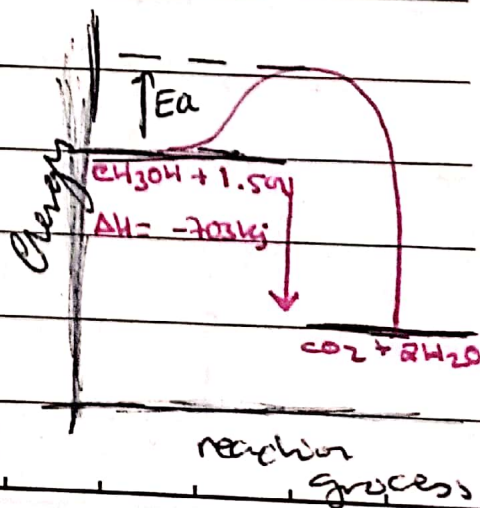 Ea
Energy
CH3OH + 1.5O2
ΔH = -703kj
CO2 + 2H2O
reaction
process